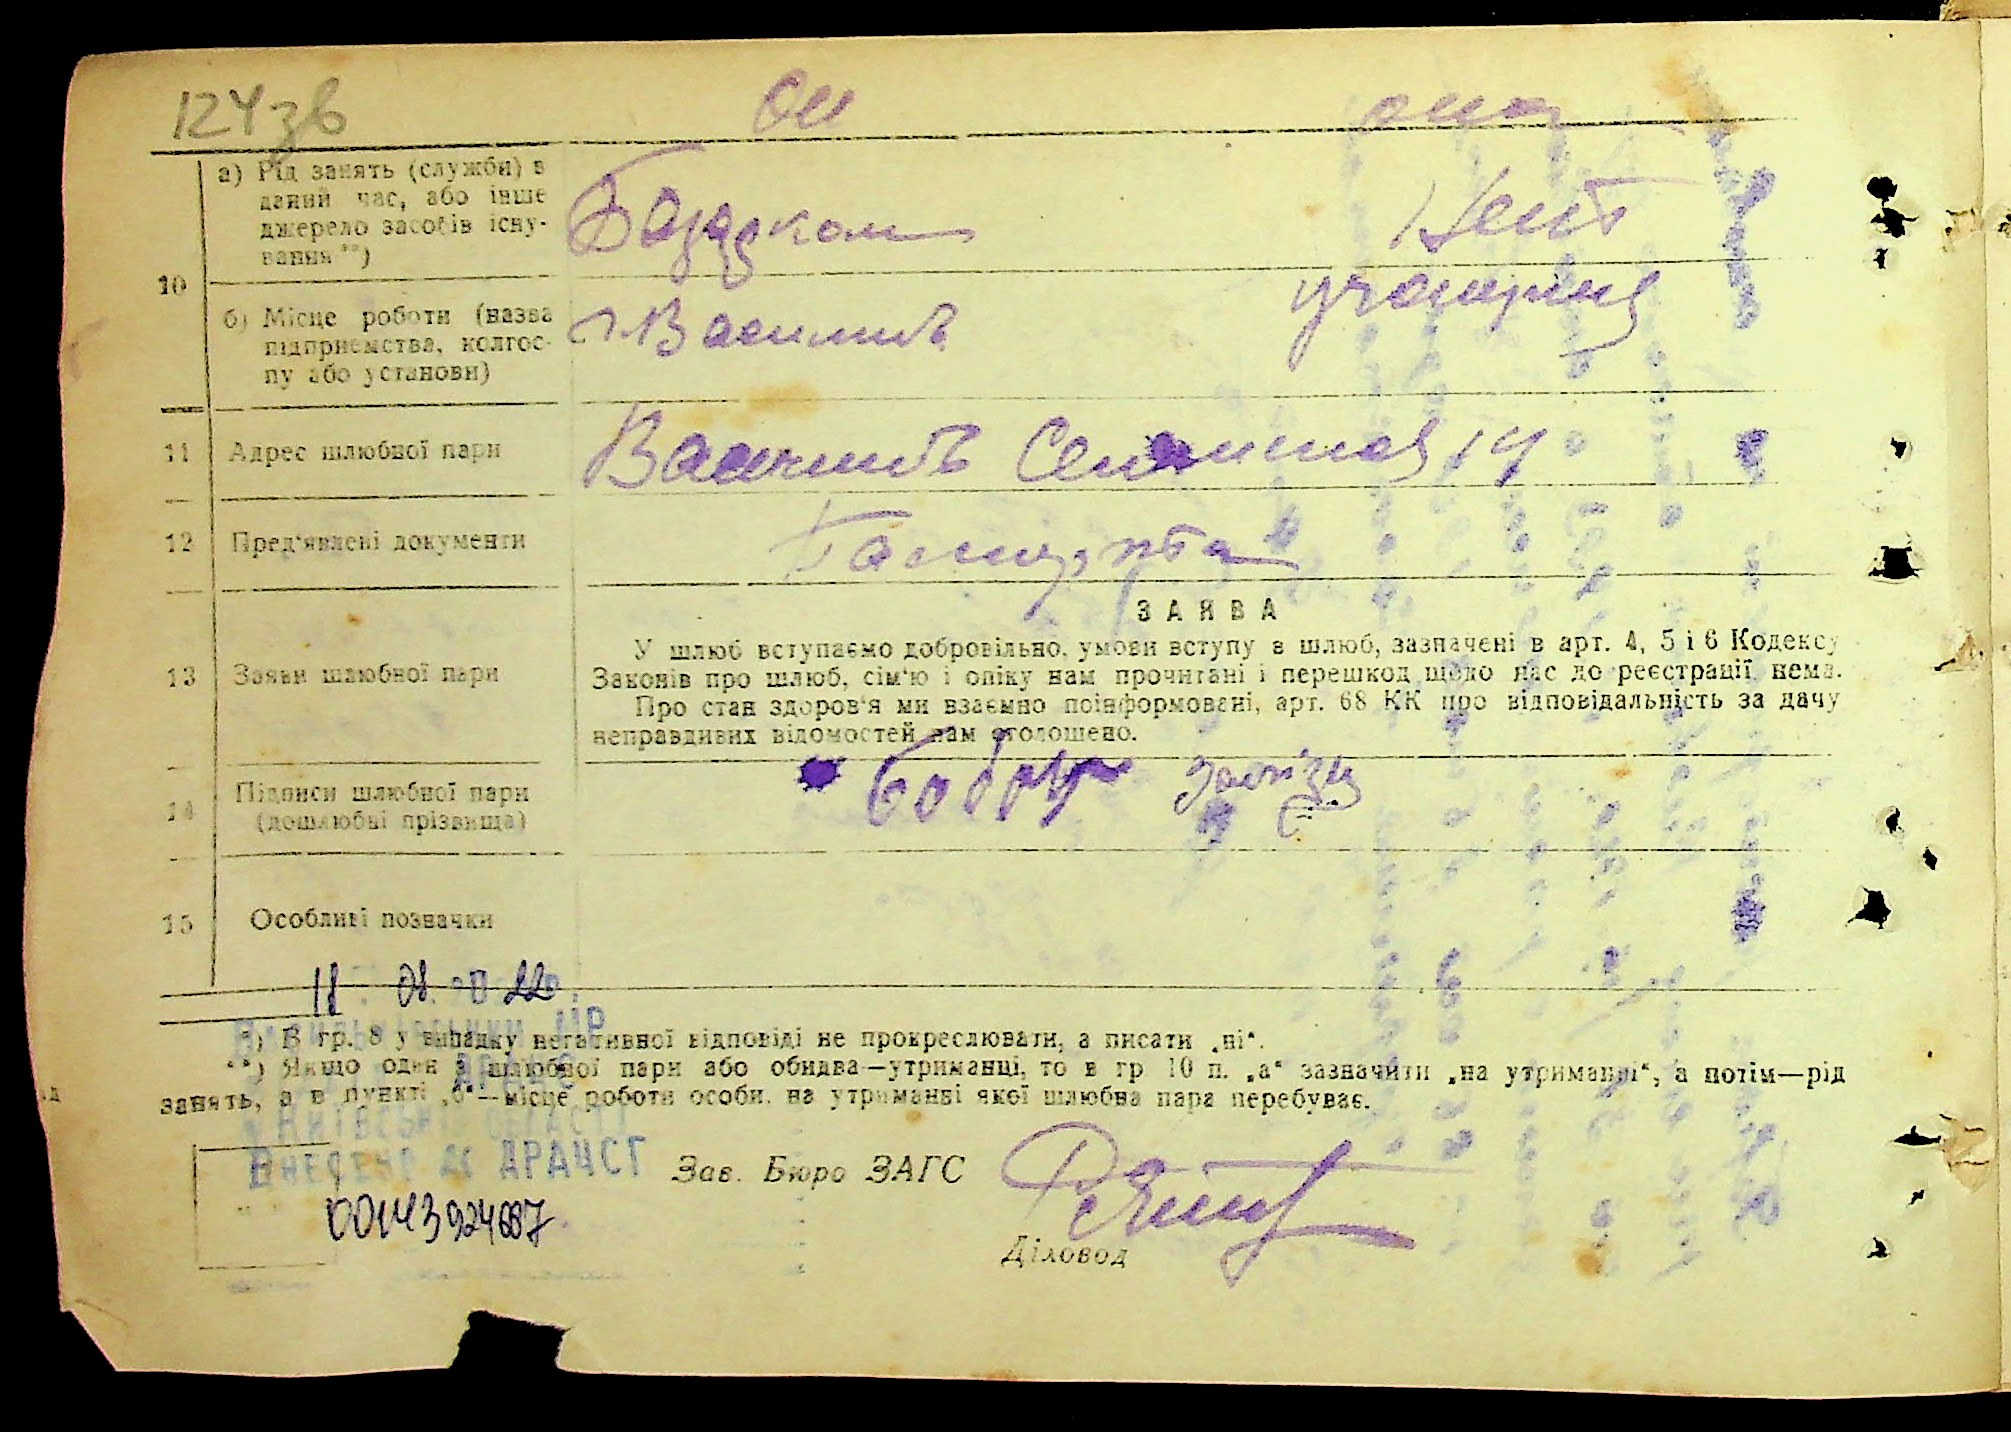 124зв
Он она
10
а) Рід занять (служби) в
даний час, або інше
джерело засобів існу-
вання **)
Нет
б) Місце роботи (назва
підприємства, колгос-
пу або установи)
г. Васильків
11 Адрес шлюбної пари
Васильків 14
12 Пред'явлені документи
Паспорта
ЗАЯВА
13 Заяви шлюбної пари
У шлюб вступаємо добровільно, умови вступу в шлюб, зазначені в арт. 4, 5 і 6 Кодексу
Законів про шлюб, сім'ю і опіку нам прочитані і перешкод щодо нас до реєстрації нема.
Про стан здоров'я ми взаємно поінформовані, арт. 68 КК про відповідальність за дачу
неправдивих відомостей нам оголошено.
14 Підписи шлюбної пари
(дошлюбні прізвища)
15 Особливі позначки
18 08 22
*) В гр. 8 у випадку негативної відповіді не прокреслювати, а писати „ні“.
**) Якщо один з шлюбної пари або обидва—утриманці, то в гр 10 п. „а“ зазначити „на утриманні“, а потім—рід
занять, а в пункті „б“—місце роботи особи, на утриманні якої шлюбна пара перебуває.
ВНЕСЕНО ДО ДРАЦСГ
Зав. Бюро ЗАГС
00143924687
Діловод